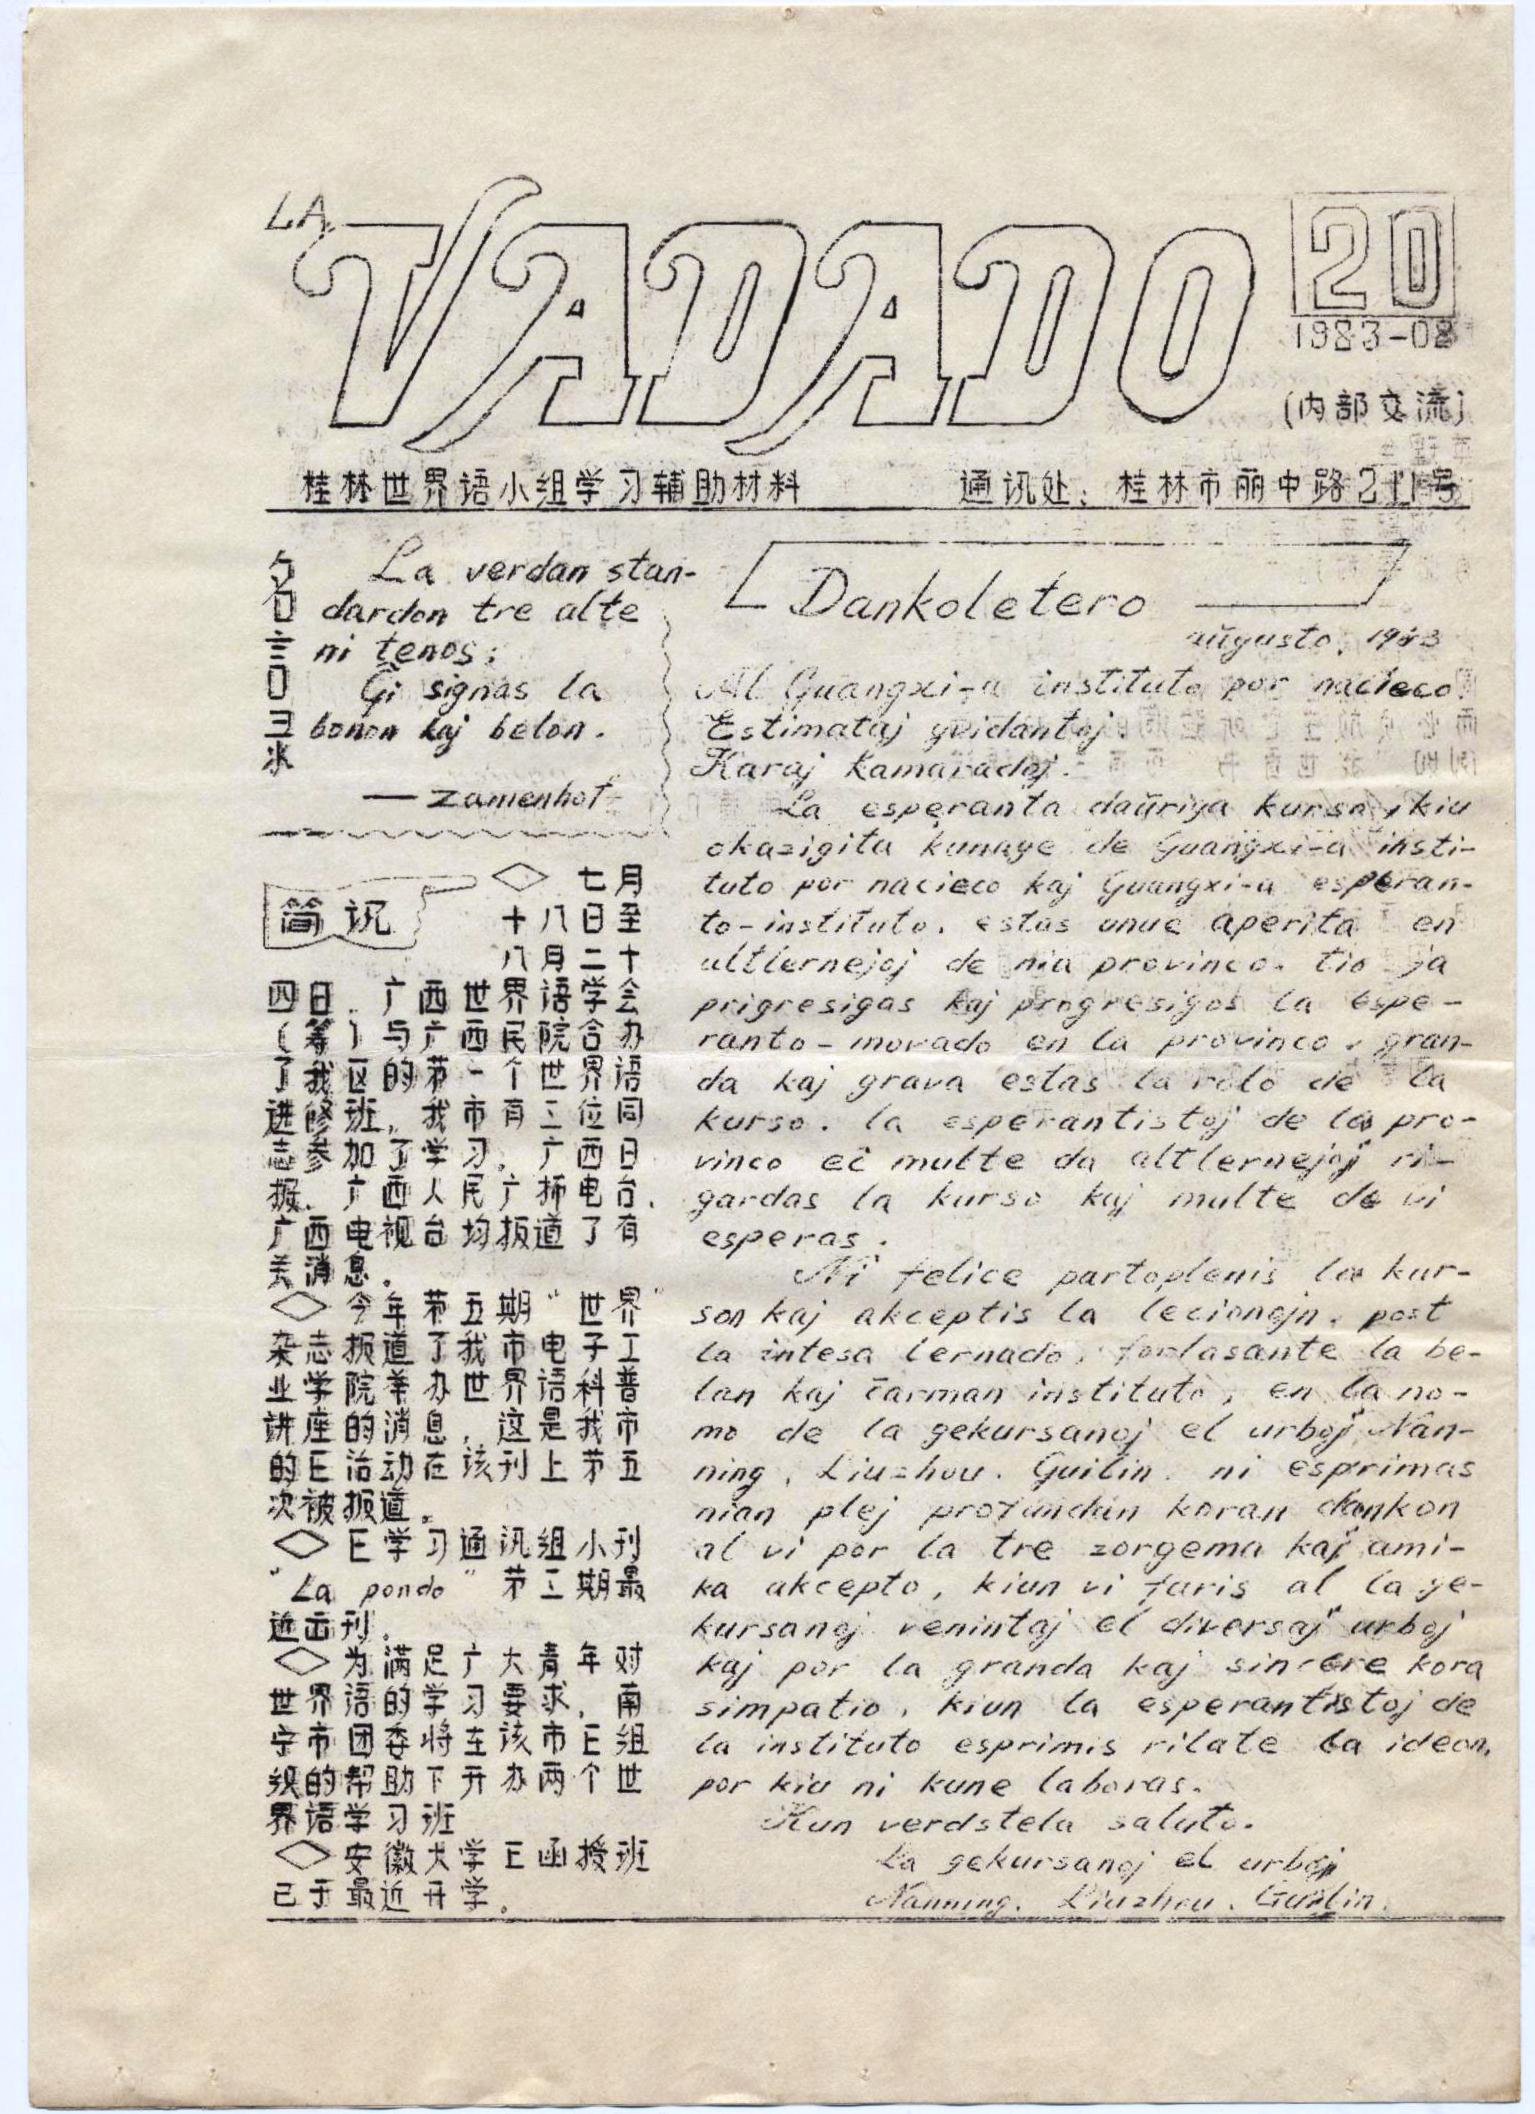 LA VADADO
20
1983-08
(内部交流)
桂林世界语小组学习辅助材料 通讯处:桂林市丽中路211号
名言口译
La verdan stan-
dardon tre alte
ni tenos;
Ĝi signas la
bonon kaj belon.
— Zamenhof
简讯
◇ 七月
十八日至
八月二十
四日,广西世界语学会
(筹)与广西民院合办
了我区的第一个世界语
进修班,我市有三位同
志参加了学习。广西日
报、广西人民广播电台、
广西电视台均报道了有
关消息。
◇今年第五期“世界”
杂志报道了我市电子工
业学院举办世界语科普
讲座的消息,这是我市
的E活动在该刊上第五
次被报道。
◇E学习通讯组小刊
“La pondo”第三期最
近出刊。
◇为满足广大青年对
世界语的学习要求,南
宁市团委将在该市E组
织的帮助下开办两个世
界语学习班
◇安徽大学E函授班
已于最近开学。
Dankoletero
aŭgusto, 1983
Al Guangxi-a instituto por nacieco
Estimataj gvidantoj
Karaj kamaradoj.
La esperanta daŭriga kurso, kiu
okazigita kunage de Guangxi-a insti-
tuto por nacieco kaj Guangxi-a esperan-
to-instituto, estas unue aperita en
altlernejoj de nia provinco. tio ja
prigresigas kaj progresigos la espe-
ranto-movado en la provinco. gran-
da kaj grava estas la rolo de la
kurso. la esperantistoj de la pro-
vinco eĉ multe da altlernejoj ri-
gardas la kurso kaj multe de vi
esperas.
Ni felice partoplenis la kur-
son kaj akceptis la lecionojn. post
la intesa lernado, forlasante la be-
lan kaj ĉarman instituto, en la no-
mo de la gekursanoj el urboj Nan-
ning, Liuzhou, Guilin. ni esprimas
nian plej profundan koran dankon
al vi por la tre zorgema kaj ami-
ka akcepto, kiun vi faris al la ge-
kursanoj venintaj el diversaj urboj
kaj por la granda kaj sincere kora
simpatio, kiun la esperantistoj de
la instituto esprimis rilate la ideon,
por kiu ni kune laboras.
Kun verdstela saluto.
La gekursanoj el urboj
Nanning, Liuzhou, Guilin.